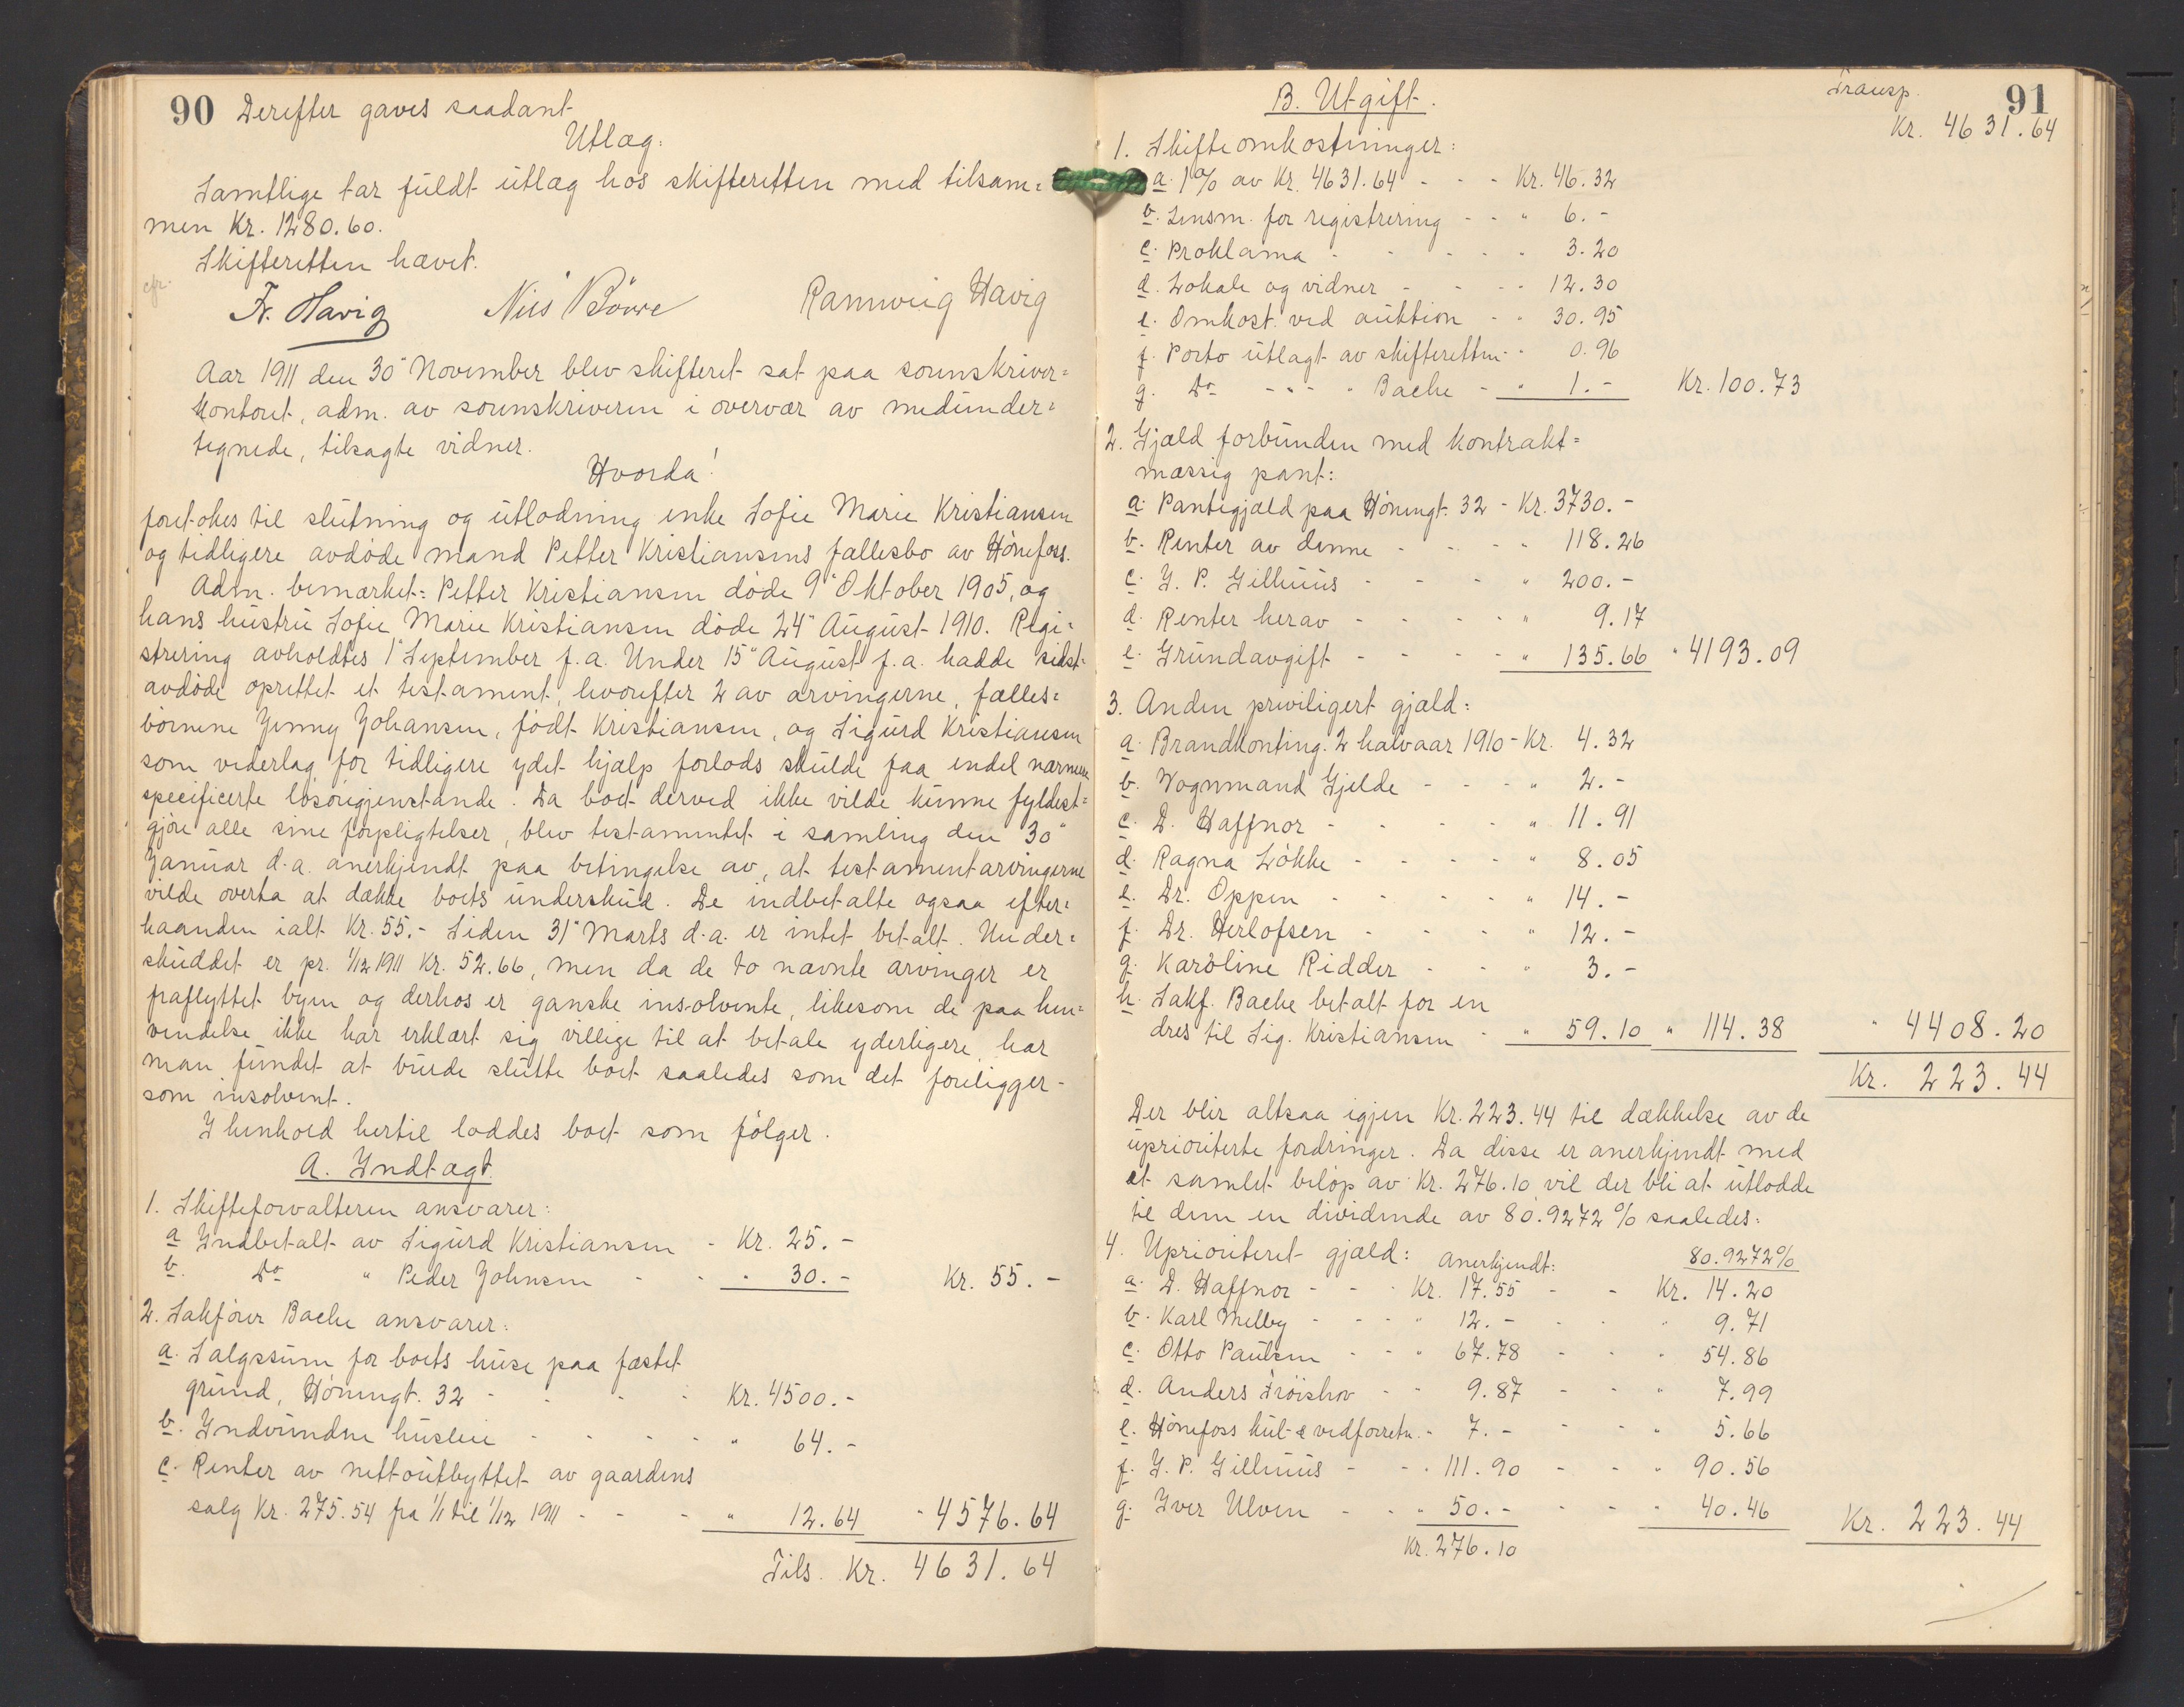 90 Derefter gaves saadant
Utlæg:
Samtlige tar fuldt utlæg hos skifteretten med tilsam=
men Kr. 1280.60.
Skifteretten hævet.
cfr.
Fr. Havig Nils Bövre Rannveig Havig
Aar 1911 den 30" November blev skifteret sat paa sorenskriver=
kontoret, adm. av sorenskriveren i overvær av medunder=
tegnede, tilsagte vidner.
Hvorda!
foretokes til slutning og utlodning enke Sofie Marie Kristiansen
og tidligere avdöde mand Petter Kristiansens fællesbo av Hönefoss.
Adm. bemærket: Petter Kristiansen döde 9" Oktober 1905, og
hans hustru Sofie Marie Kristiansen döde 24" August 1910. Regi=
strering avholdtes 1" September f.a. Under 15" August f.a. hadde sidst=
avdöde oprettet et testament, hvorefter 2 av arvingerne, fælles=
börnene Jenny Johansen, födt Kristiansen, og Sigurd Kristiansen
som vederlag for tidligere ydet hjælp forlods skulde faa endel nærmere
specificerte lösöregjenstande. Da boet derved ikke vilde kunne fyldest=
gjöre alle sine forpligtelser, blev testamentet i samling den 30"
Januar d.a. anerkjendt paa betingelse av, at testamentarvingerne
vilde overta at dække boets underskud. De indbetalte ogsaa efter=
haanden ialt Kr. 55.- Siden 31" Marts d.a. er intet betalt. Under=
skuddet er pr. 1/12 1911 Kr. 52.66, men da de to nævnte arvinger er
fraflyttet byen og derhos er ganske insolvente, likesom de paa hen=
vendelse ikke har erklært sig villige til at betale yderligere, har
man fundet at burde slutte boet saaledes som det foreligger -
som insolvent.
I henhold hertil loddes boet som fölger.
A. Indtægt.
1. Skifteforvalteren ansvarer:
a Indbetalt av Sigurd Kristiansen - Kr. 25.-
b. Do " Peder Johnsen - - " 30.- Kr. 55.-
2. Sakförer Bache ansvarer:
a. Salgssum for boets huse paa fæstet
grund, Hönengt. 32 - - - - Kr. 4500.-
b. Indvundne husleie - - - - " 64.-
c. Renter av nettoutbyttet av gaardens
salg Kr. 275.54 fra 1/1 til 1/12 1911 - - - " 12.64 " 4576.64
Tils. Kr. 4631.64
B. Utgift. Transp. 91
Kr. 4631.64
1. Skifteomkostninger:
a. 1% av Kr. 4631.64 - - - Kr. 46.32
b. Lensm. for registrering - - " 6.-
c. Proklama - - - - " 3.20
d. Lokale og vidner - - - - 12.30
e. Omkost. ved auktion - " 30.95
f. Porto utlagt av skifteretten - " 0.96
g. Do - " - " Bache - " 1.- Kr. 100.73
2. Gjæld forbunden med kontrakt=
mæssig pant:
a. Pantegjæld paa Hönengt. 32 - Kr. 3730.-
b. Renter av denne - - - " 118.26
c. J. P. Gillhuus - - - " 200.-
d. Renter herav - - - - " 9.17
e. Grundavgift - - - - " 135.66 " 4193.09
3. Anden priviligert gjæld:
a. Brandkonting. 2 halvaar 1910 - Kr. 4.32
b. Vognmand Gjelde - - - " 2.-
c. D. Haffnor - - - - " 11.91
d. Ragna Lökke - - - - " 8.05
e. Dr. Oppen - - - - " 14.-
f. Dr. Herlofsen - - - " 12.-
g. Karoline Ridder - - " 3.-
h. Sakf. Bache betalt for en
dres til Sig. Kristiansen - " 59.10 " 114.38 " 4408.20
Kr. 223.44
Der blir altsaa igjen Kr. 223.44 til dækkelse av de
uprioriterte fordringer. Da disse er anerkjendt med
et samlet belöp av Kr. 276.10 vil der bli at utlodde
til dem en dividende av 80.9272 % saaledes:
4. Uprioriteret gjæld: Anerkjendt: 80.9272%
a. D. Haffnor - - - Kr. 17.55 - - Kr. 14.20
b. Karl Melby - - - " 12.- - - " 9.71
c. Otto Paulsen - - " 67.78 - - " 54.86
d. Anders Tröishov - - 9.87 - - " 7.99
e. Hönefoss kul- & vedforretn. - 7.- - - " 5.66
f. J. P. Gillhuus - - - 111.90 - - " 90.56
g. Iver Ulven - - " 50.- - - " 40.46 Kr. 223.44
Kr. 276.10